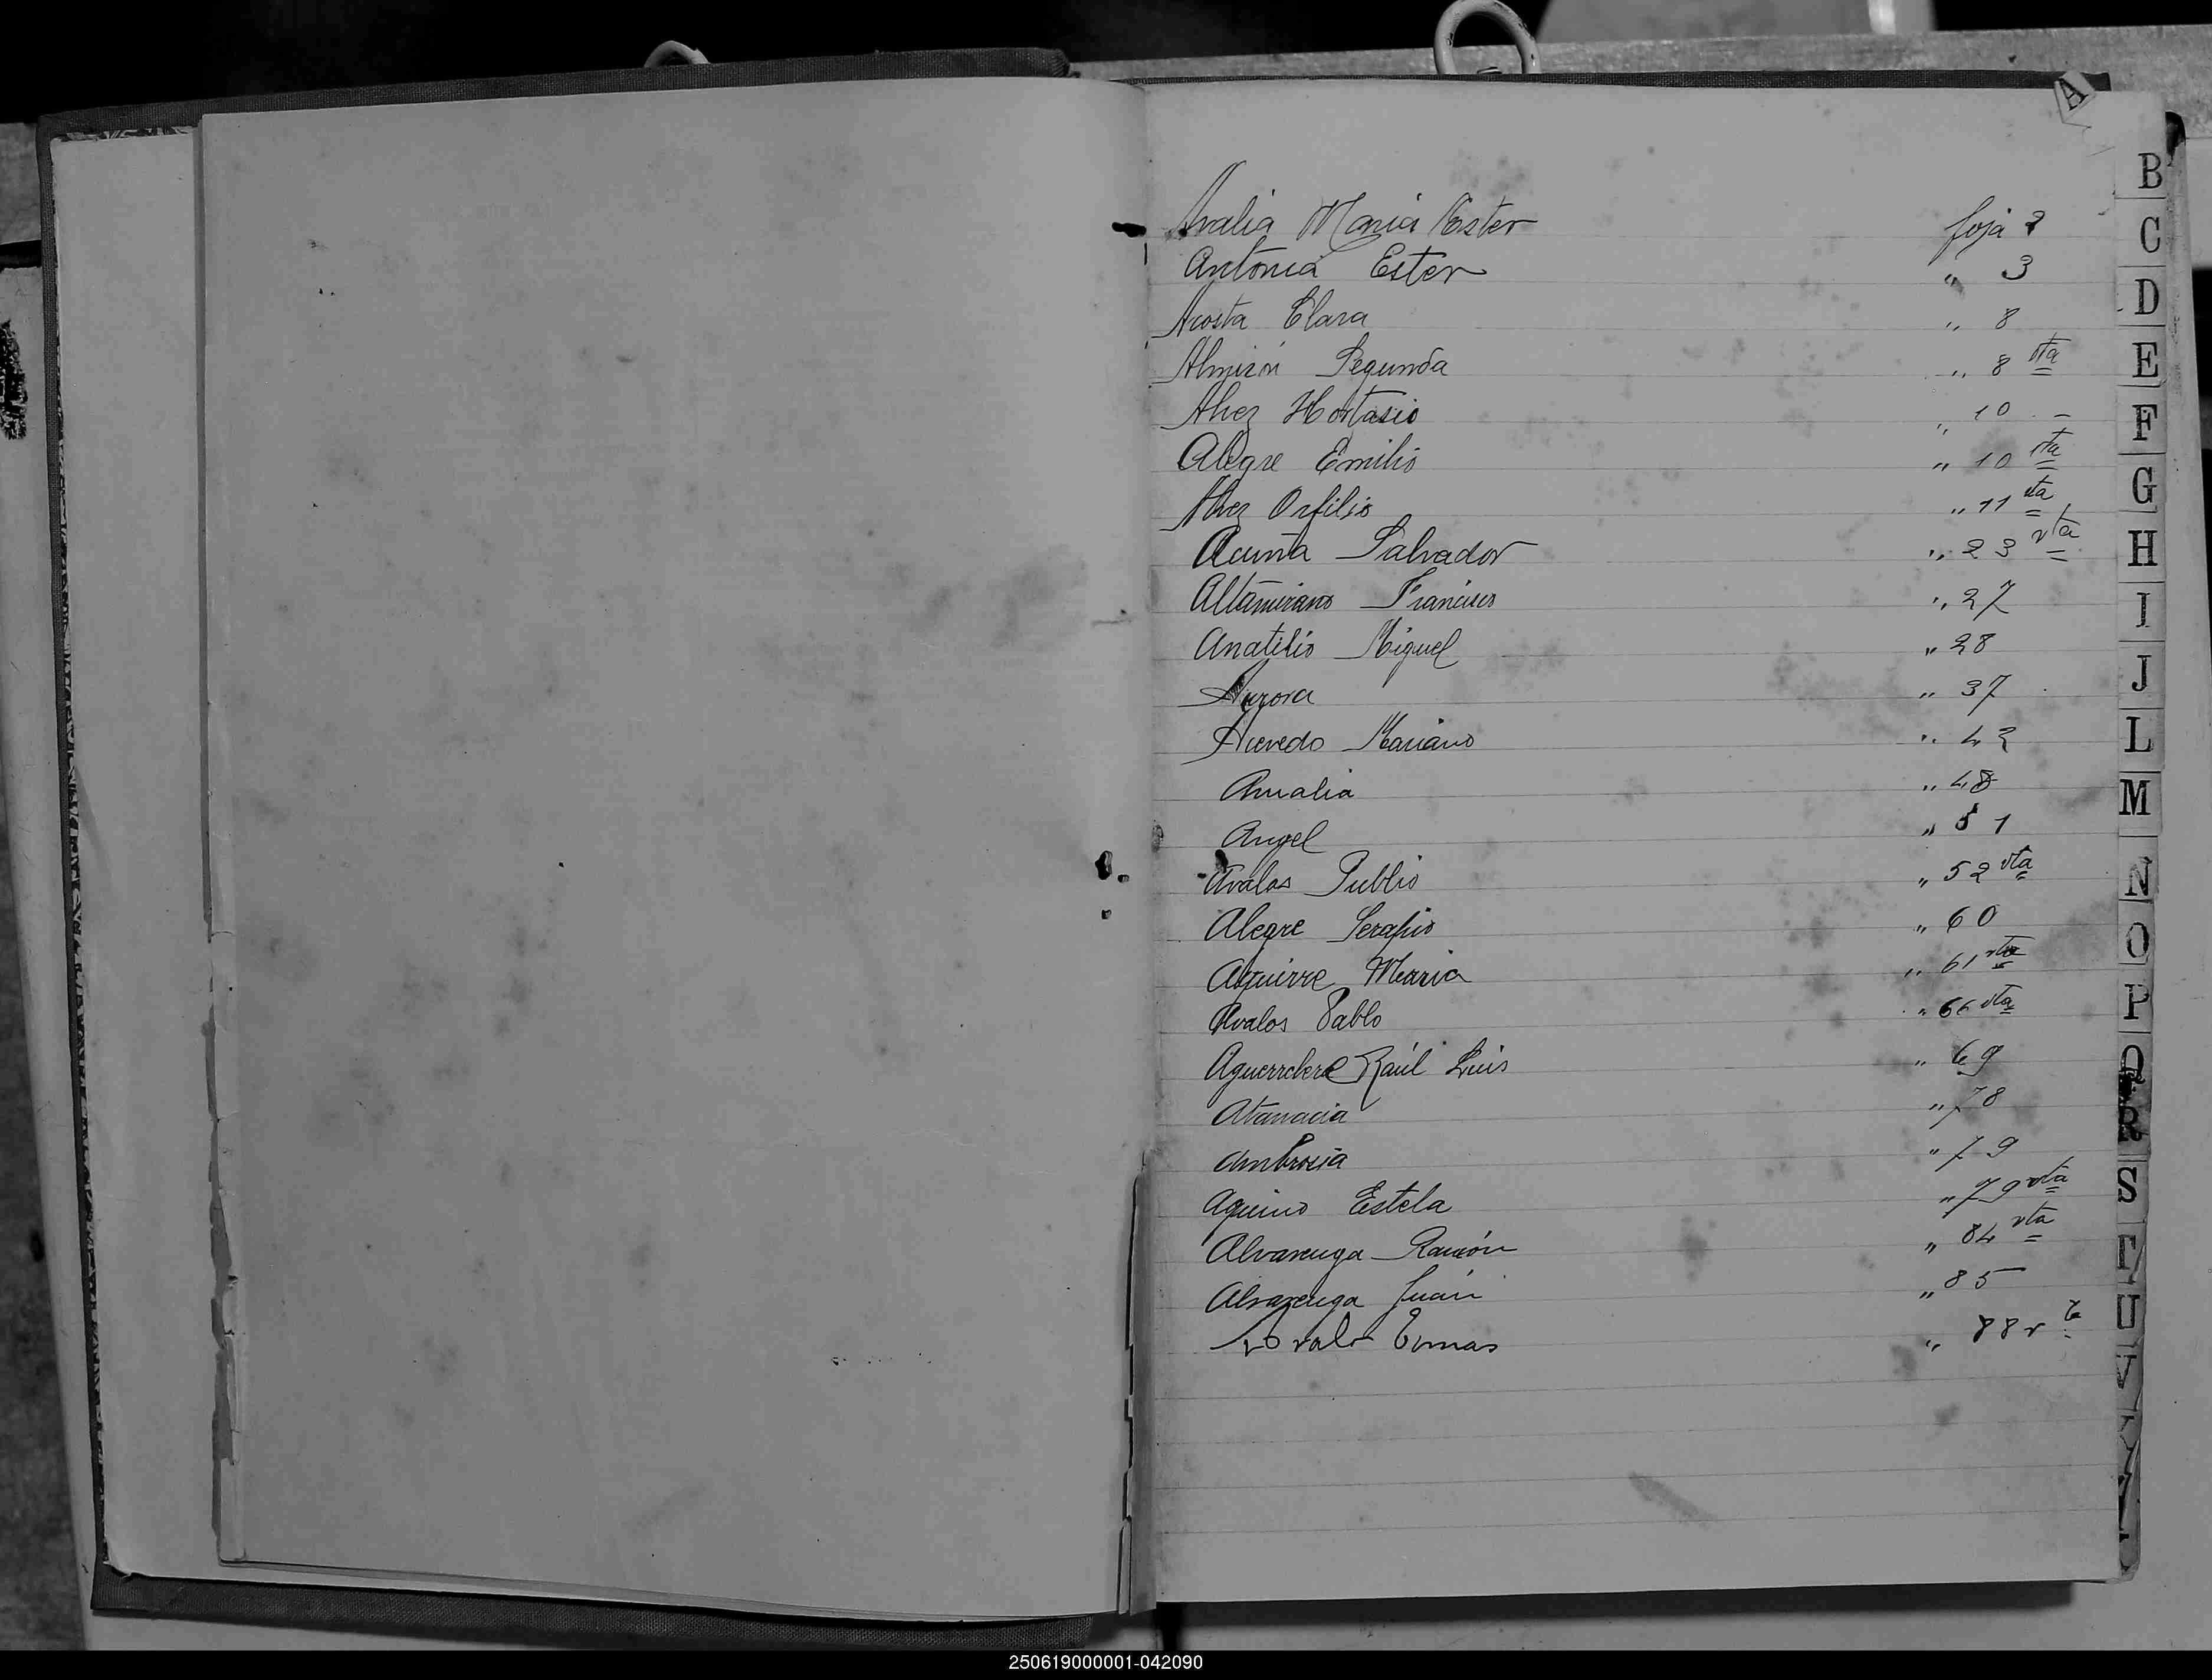 A
Avalia Maria Ester foja 2
Antonia Ester " 3
Acosta Clara " 8
Almirón Segunda " 8 vta
Alvez Hortasio " 10 -
Alegre Emilio " 10 vta
Alvez Orfilio " 11 vta
Acuña Salvador " 23 vta
Altamirano Francisco " 27
Anatilio Miguel " 28
Aurora " 37
Acevedo Mariano " 42
Amalia " 48
Angel " 51
Avalos Publio " 52 vta
Alegre Serapio " 60
Aguirre Maria " 61 vta
Avalos Pablo " 66 vta
Aguerrebere Raúl Luis " 69
Atanacia " 78
Ambrosia " 79
Aquino Estela " 79 vta
Alvarenga Ramón " 84 vta
Alvarenga Juán " 85
Tomas " 88 vta
B
C
D
E
F
G
H
I
J
L
M
N
O
P
Q
R
S
T
U
V
Y
250619000001-042090